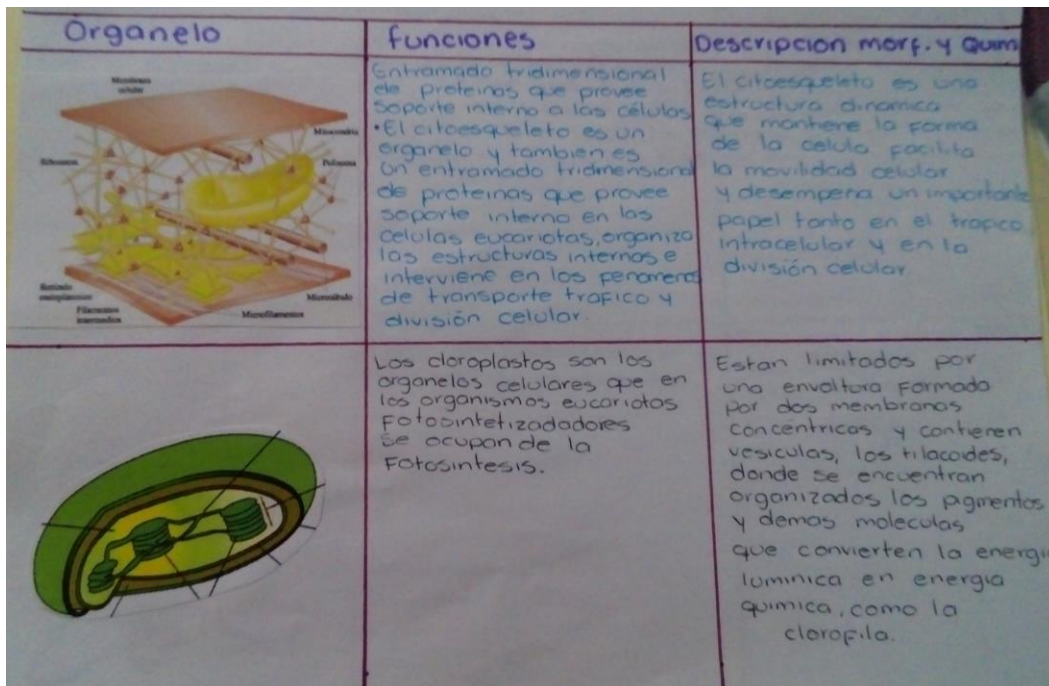 Organelo
funciones
Descripcion morf. y Quim
Membrana
celular
Mitocondria
Ribosomas
Polisoma
Retículo
endoplasmico
Filamentos
intermedios
Microfilamentos
Microtúbulo
Entramado tridimensional
de proteinas que provee
soporte interno a las células
•El citoesqueleto es un
organelo y tambien es
un entramado tridimensional
de proteinas que provee
soporte interno en las
celulas eucariotas, organiza
las estructuras internas e
interviene en los fenomenos
de transporte trafico y
división celular.
El citoesqueleto es una
estructura dinamica
que mantiene la forma
de la celula facilita
la movilidad celular
y desempeña un importante
papel tanto en el trafico
intracelular y en la
división celular
Los cloroplastos son los
organelos celulares que en
los organismos eucariotas
Fotosintetizadadores
se ocupan de la
Fotosintesis.
Estan limitados por
una envoltura formada
por dos membranas
concentricas y contienen
vesiculas, los tilacoides,
donde se encuentran
organizados los pigmentos
y demas moleculas
que convierten la energi
luminica en energia
quimica, como la
clorofila.